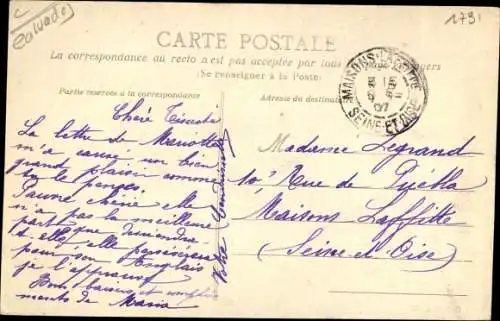 Calvados
1791
CARTE POSTALE
La correspondance au recto n'est pas acceptée par tous
(Se renseigner à la Poste)
Partie réservée à la correspondance
Adresse du destinataire
MAISONS-LAFFITTE
07
SEINE-ET-OISE
Chère
La lettre de
m'a causé un bien
grand plaisir comme
tu le penses.
Pauvre chérie elle
n'a pas la meilleure
part que
d'elle, elle
pour son Anglais
je l'approuve
Bons baisers et
ments de Maria
Votre
Madame Legrand
10, Rue de Puébla
Maisons Laffitte
(Seine et Oise)